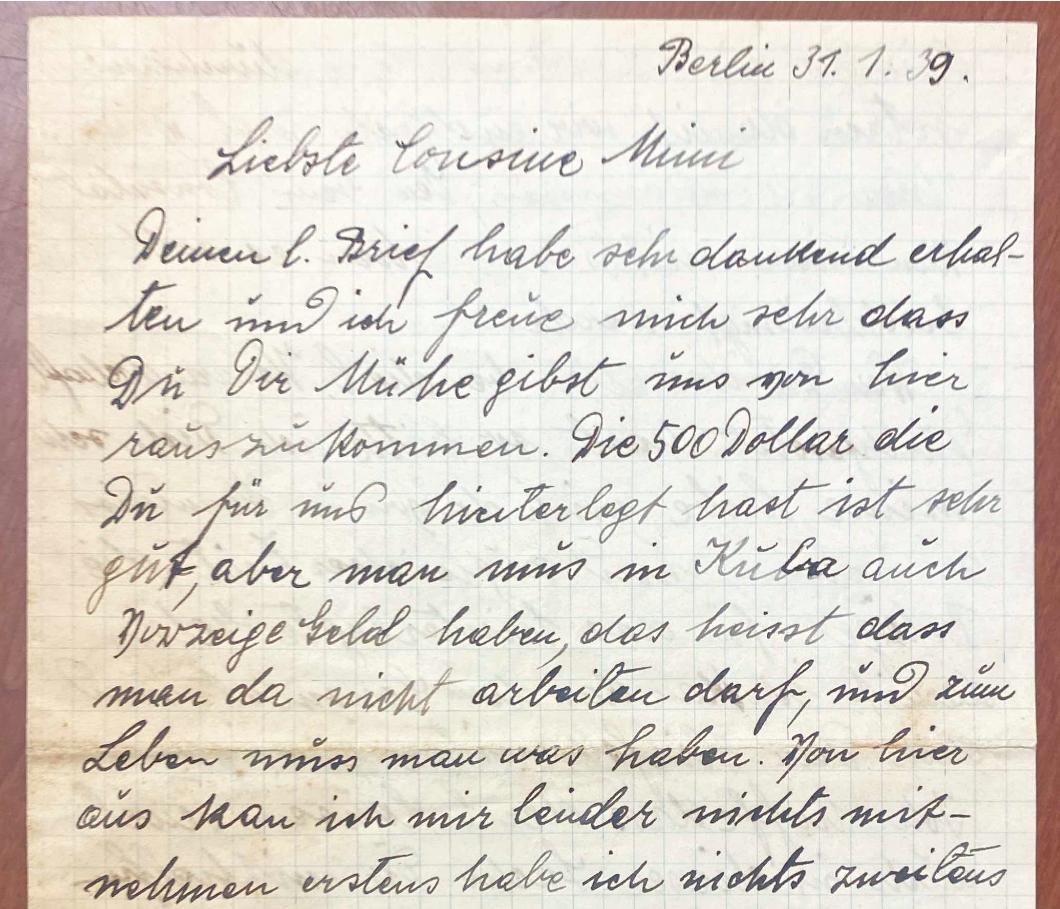 Berlin 31. 1. 39.
Liebste Cousine Mimi
Deinen l. Brief habe sehr dankend erhal-
ten und ich freue mich sehr dass
Du Dir Mühe gibst uns von hier
rauszukommen. Die 500 Dollar die
Du für uns hinterlegt hast ist sehr
gut, aber man mus in Kuba auch
Vorzeige Geld haben, das heisst dass
man da nicht arbeiten darf, und zum
Leben muss man was haben. Von hier
aus kan ich mir leider nichts mit-
nehmen erstens habe ich nichts zweitens